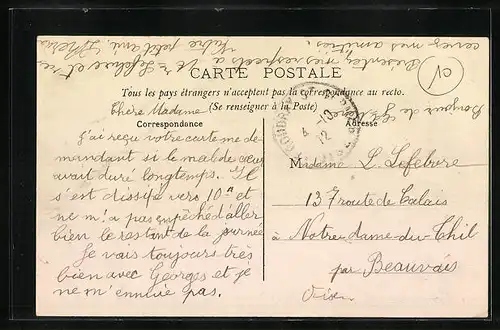 CARTE POSTALE
Tous les pays étrangers n'acceptent pas la correspondance au recto.
(Se renseigner à la Poste)
Correspondance
Adresse
Chère Madame
J'ai reçu votre carte me de-
mandant si le mal de cœur
avait duré longtemps. Il
s'est dissipé vers 10h et
ne m'a pas empêché d'aller
bien le restant de la journée
Je vais toujours très
bien avec Georges et je
ne m'ennuie pas.
Présentez mes respects à Mr Lefebvre et re-
cevez mes amitiés.
Votre petit ami.
Bonjour de
Madame L. Lefebvre
137 route de Calais
à Notre-Dame-du-Thil
par Beauvais
Oise